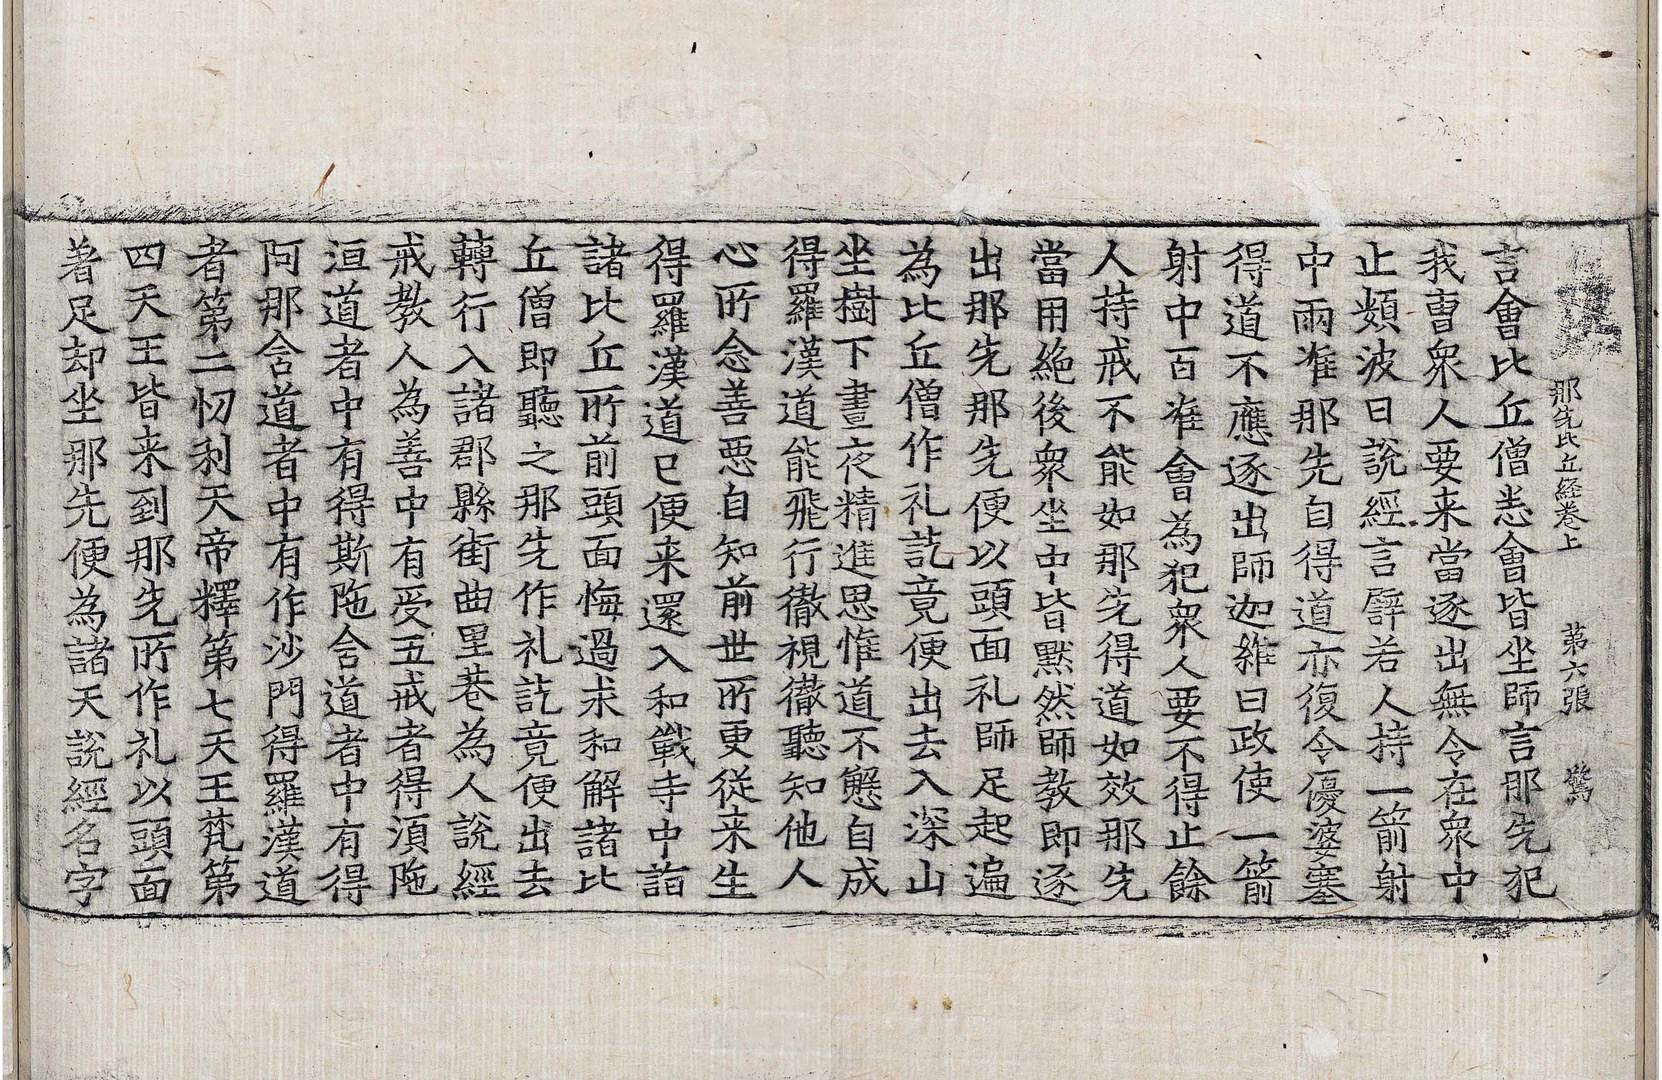 那先比丘経卷上 第六張 驚
言會比丘僧悉會皆坐師言那先犯
我曺衆人要来當逐出無令在衆中
止頞波曰說經言譬若人持一箭射
中兩准那先自得道亦復令優婆塞
得道不應逐出師迦維曰政使一箭
射中百准會為犯衆人要不得止餘
人持戒不能如那先得道如效那先
當用絶後衆坐中皆默然師教即逐
出那先那先便以頭面礼師足起遍
為比丘僧作礼訖竟便出去入深山
坐樹下晝夜精進思惟道不懈自成
得羅漢道能飛行徹視徹聽知他人
心所念善惡自知前世所更従来生
得羅漢道已便来還入和戰寺中詣
諸比丘所前頭面悔過求和解諸比
丘僧即聽之那先作礼訖竟便出去
轉行入諸郡縣街曲里巷為人說經
戒教人為善中有受五戒者得湏陁
洹道者中有得斯陁含道者中有得
阿那含道者中有作沙門得羅漢道
者第二忉利天帝釋第七天王梵第
四天王皆来到那先所作礼以頭面
著足却坐那先便為諸天說經名字